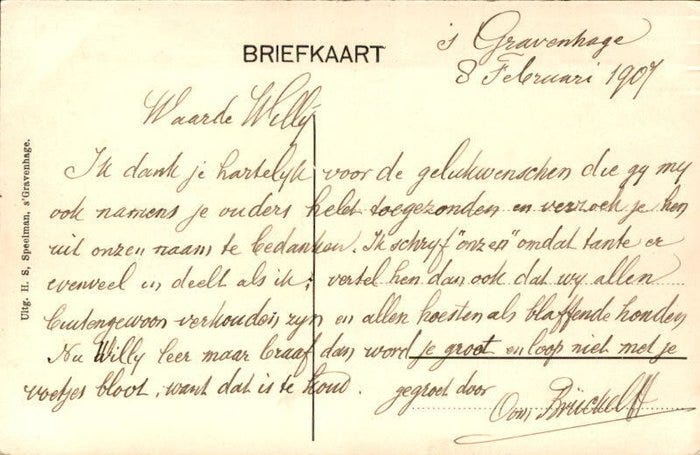 BRIEFKAART
's Gravenhage
8 Februari 1907
Waarde Willÿ
Ik dank je hartelyk voor de gelukwenschen die gy my
ook namens je ouders hebt toegezonden en verzoek je hen
uit onzen naam te bedanken. Ik schryf "onzen" omdat tante er
evenveel in deelt als ik; vertel hen dan ook dat wy allen
buitengewoon verkouden zyn en allen hoesten als blaffende honden
Nu Willy leer maar braaf dan word je groot en loop niet met je
voetjes bloot, want dat is te koud. gegroet door
Oom
Uitg. H. S. Speelman, s'Gravenhage.